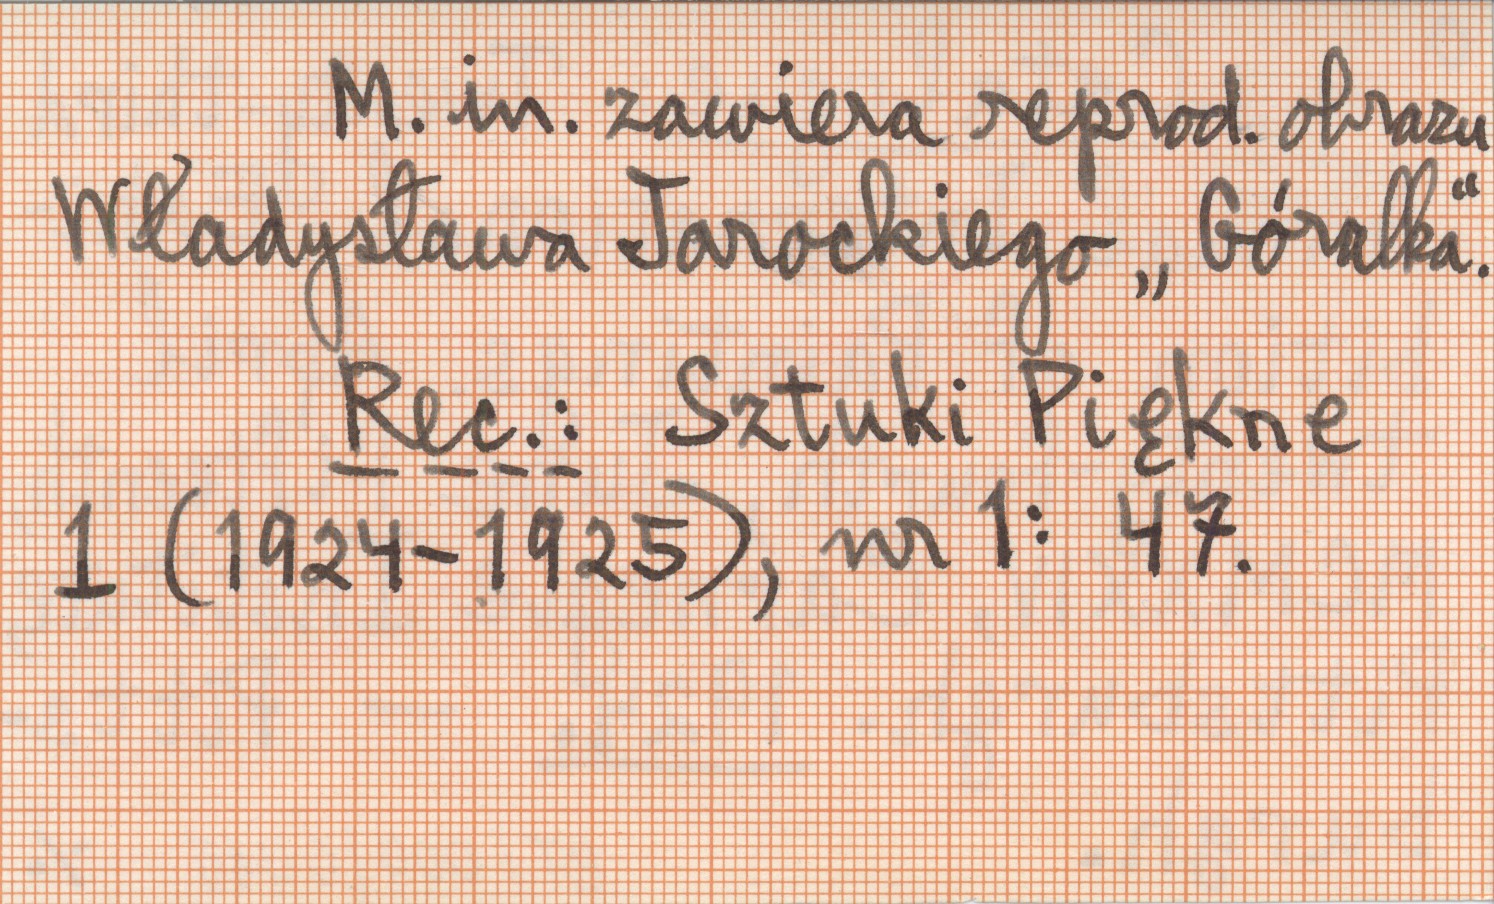 M. in. zawiera reprod. obrazu
Władysława Jarockiego „Góralka“.
Rec.: Sztuki Piękne
1 (1924-1925), nr 1: 47.